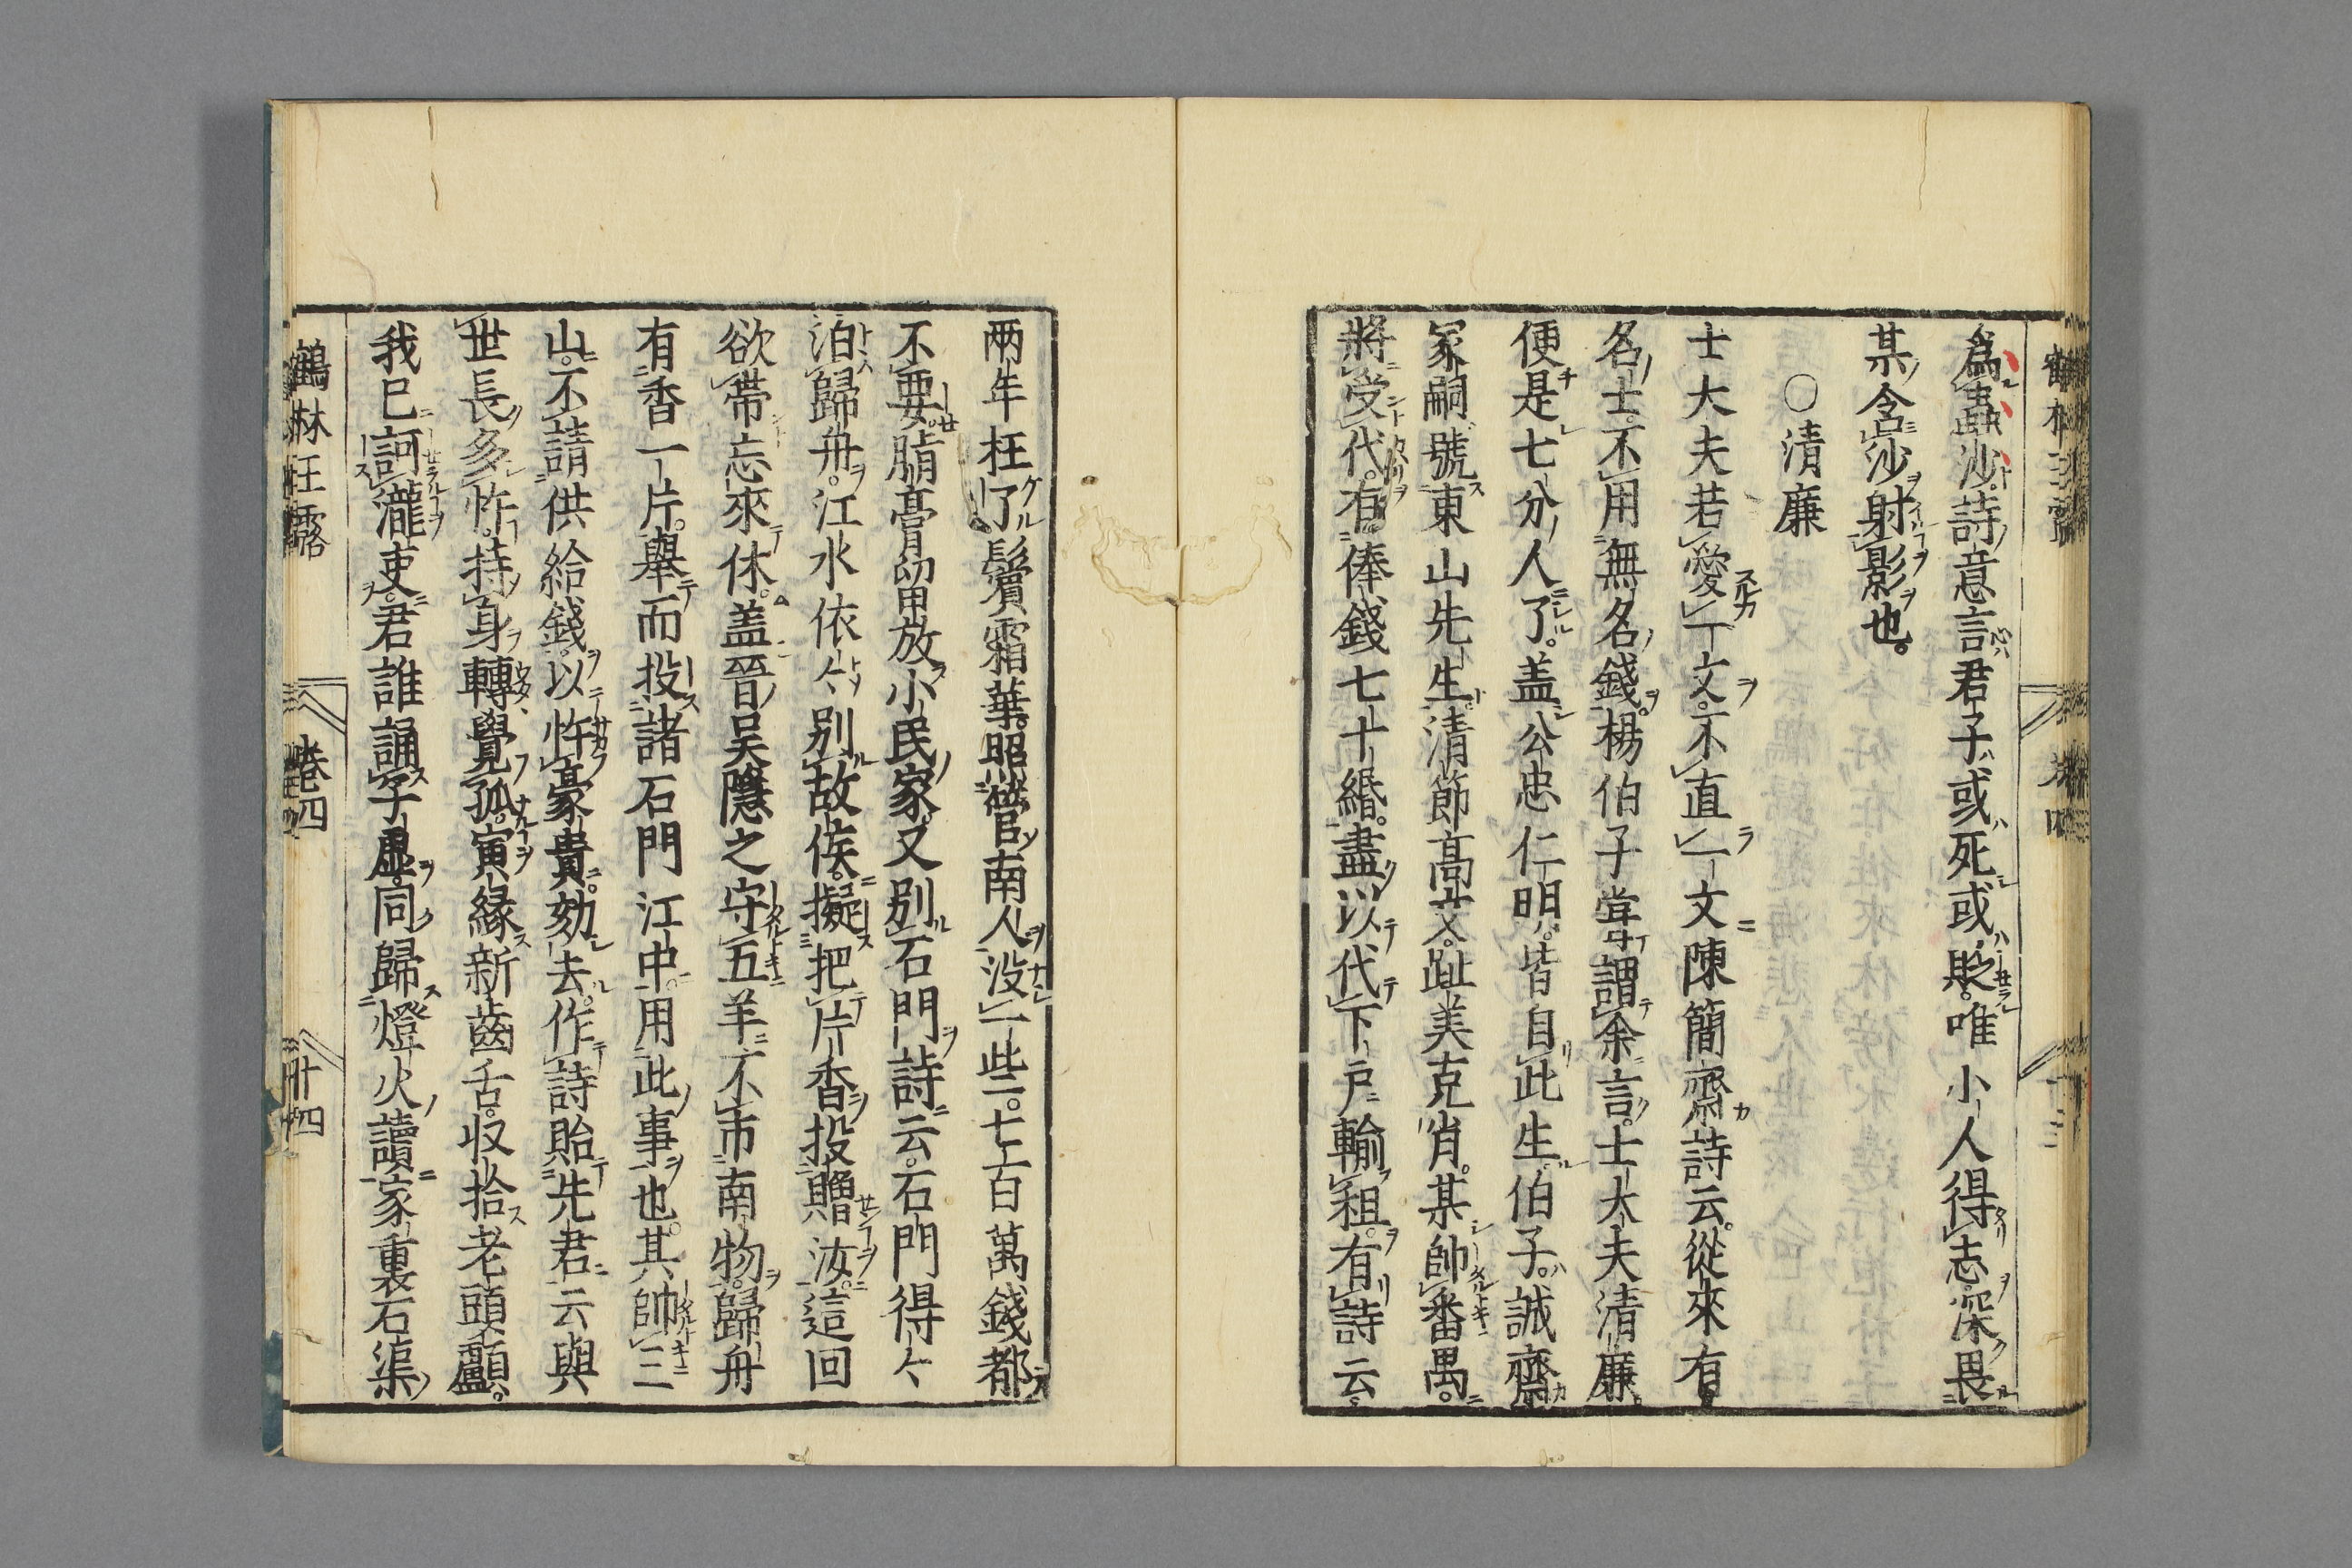 為蟲沙詩意言君子或死或貶唯小人得志深畏
其含沙射影也
〇清廉
士大夫若愛一文不直一文陳簡齋詩云從來有
名士不用無名錢楊伯子嘗謂余言士大夫清廉
便是七分人了盖公忠仁明皆自此生伯子誠齋
冢嗣號東山先生清節高文趾美克肖其帥番禺
將受代有俸錢七千緡盡以代下戸輸租有詩云
両年枉了鬢霜華照管南人没一些七百萬錢都
不要脂膏留放小民家又别石門詩云石門得得
泊歸舟江水依依别故侯擬把片香投贈汝這回
欲帶忘來休盖晉吴隱之守五羊不市南物歸舟
有香一片舉而投諸石門江中用此事也其帥三
山不請供給錢以忤豪貴劾去作詩貽先君云與
世長多忤持身轉覺孤寅縁新齒舌収拾老頭顱
我已訶瀧吏君誰誦子虚同歸燈火讀家裏石渠
鶴林玉露 卷四 十四